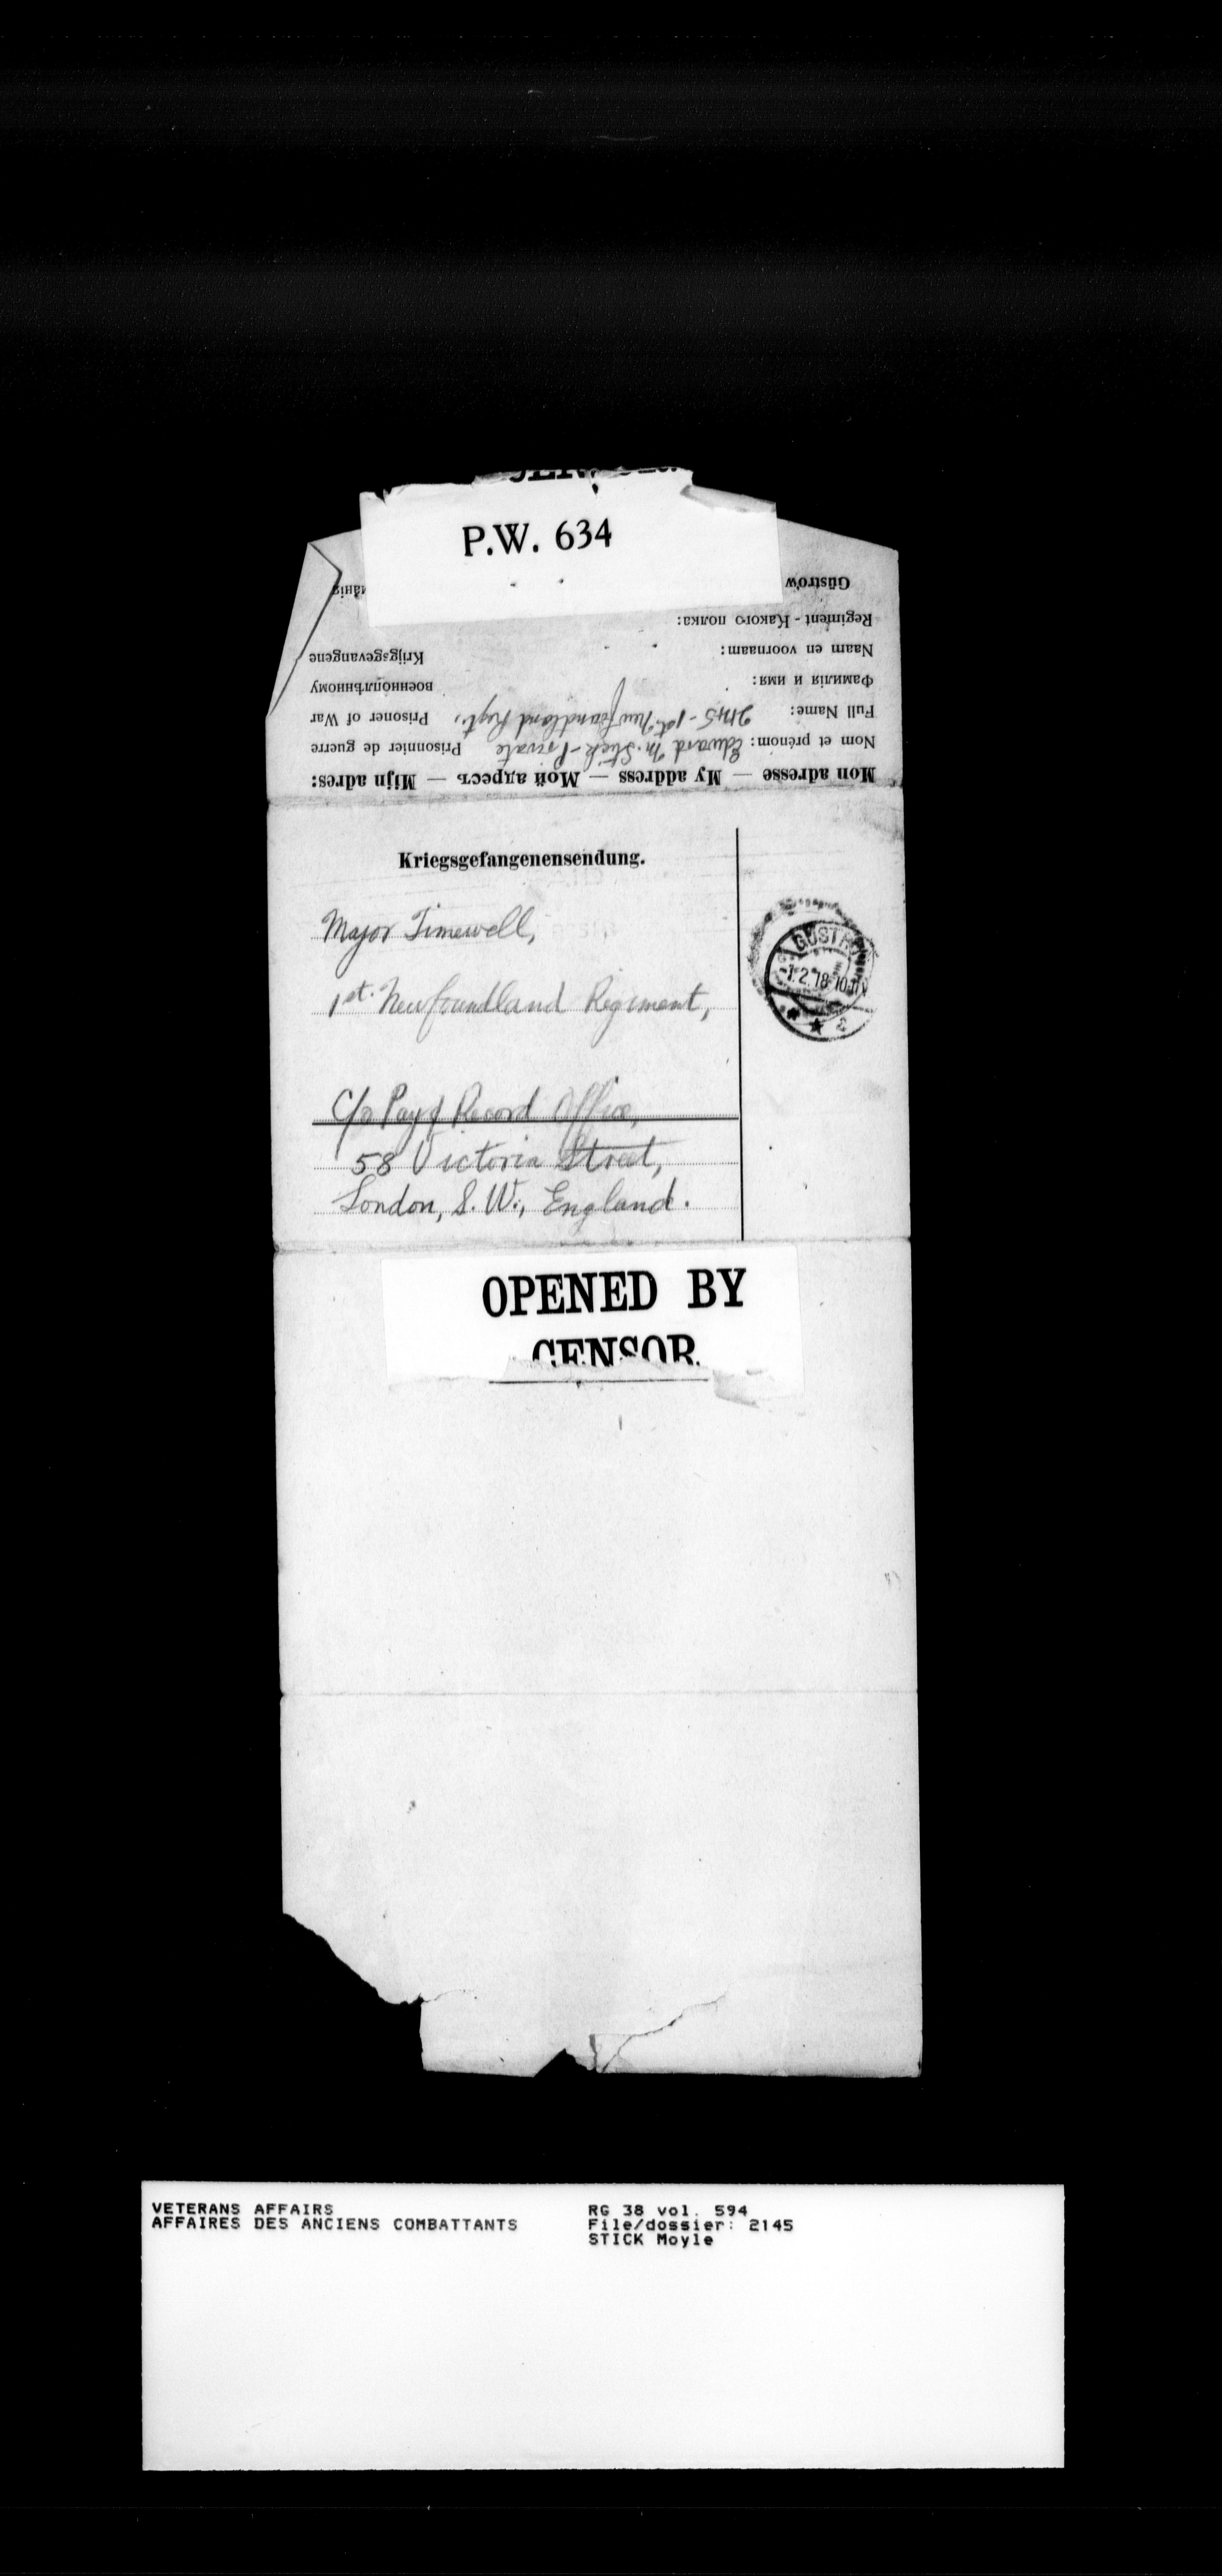 P.W. 634
Mon adresse — My address — Мой адресъ — Mijn adres:
Nom et prénom: Edward M. Stick - Private Prisonnier de guerre
Full Name: 2145 - 1st Newfoundland Regt. Prisoner of War
Фамилія и имя: военноплѣнному
Naam en voornaam: Krijgsgevangene
Regiment - Какого полка:
Güstrow
Kriegsgefangenensendung.
Major Timewell,
1st. Newfoundland Regiment,
C/o Pay & Record Office,
58 Victoria Street,
London, S.W., England.
GÜSTR
1.2.18
OPENED BY
CENSOR.
VETERANS AFFAIRS
AFFAIRES DES ANCIENS COMBATTANTS
RG 38 vol. 594
File/dossier: 2145
STICK Moyle